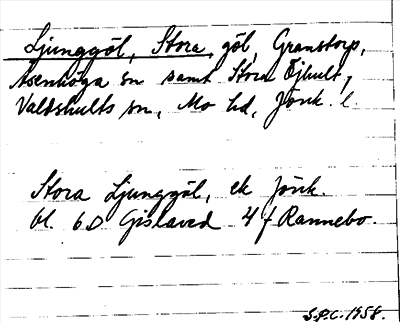 Ljunggöl, Stora, göl, Granstorp,
Åsenhöga sn samt Stora Öjhult,
Valdshults sn, Mo hd, Jönk. l.
Stora Ljunggöl, ek Jönk.
bl. 6D Gislaved 4 f Rannebo.
S.P.C. 1958.